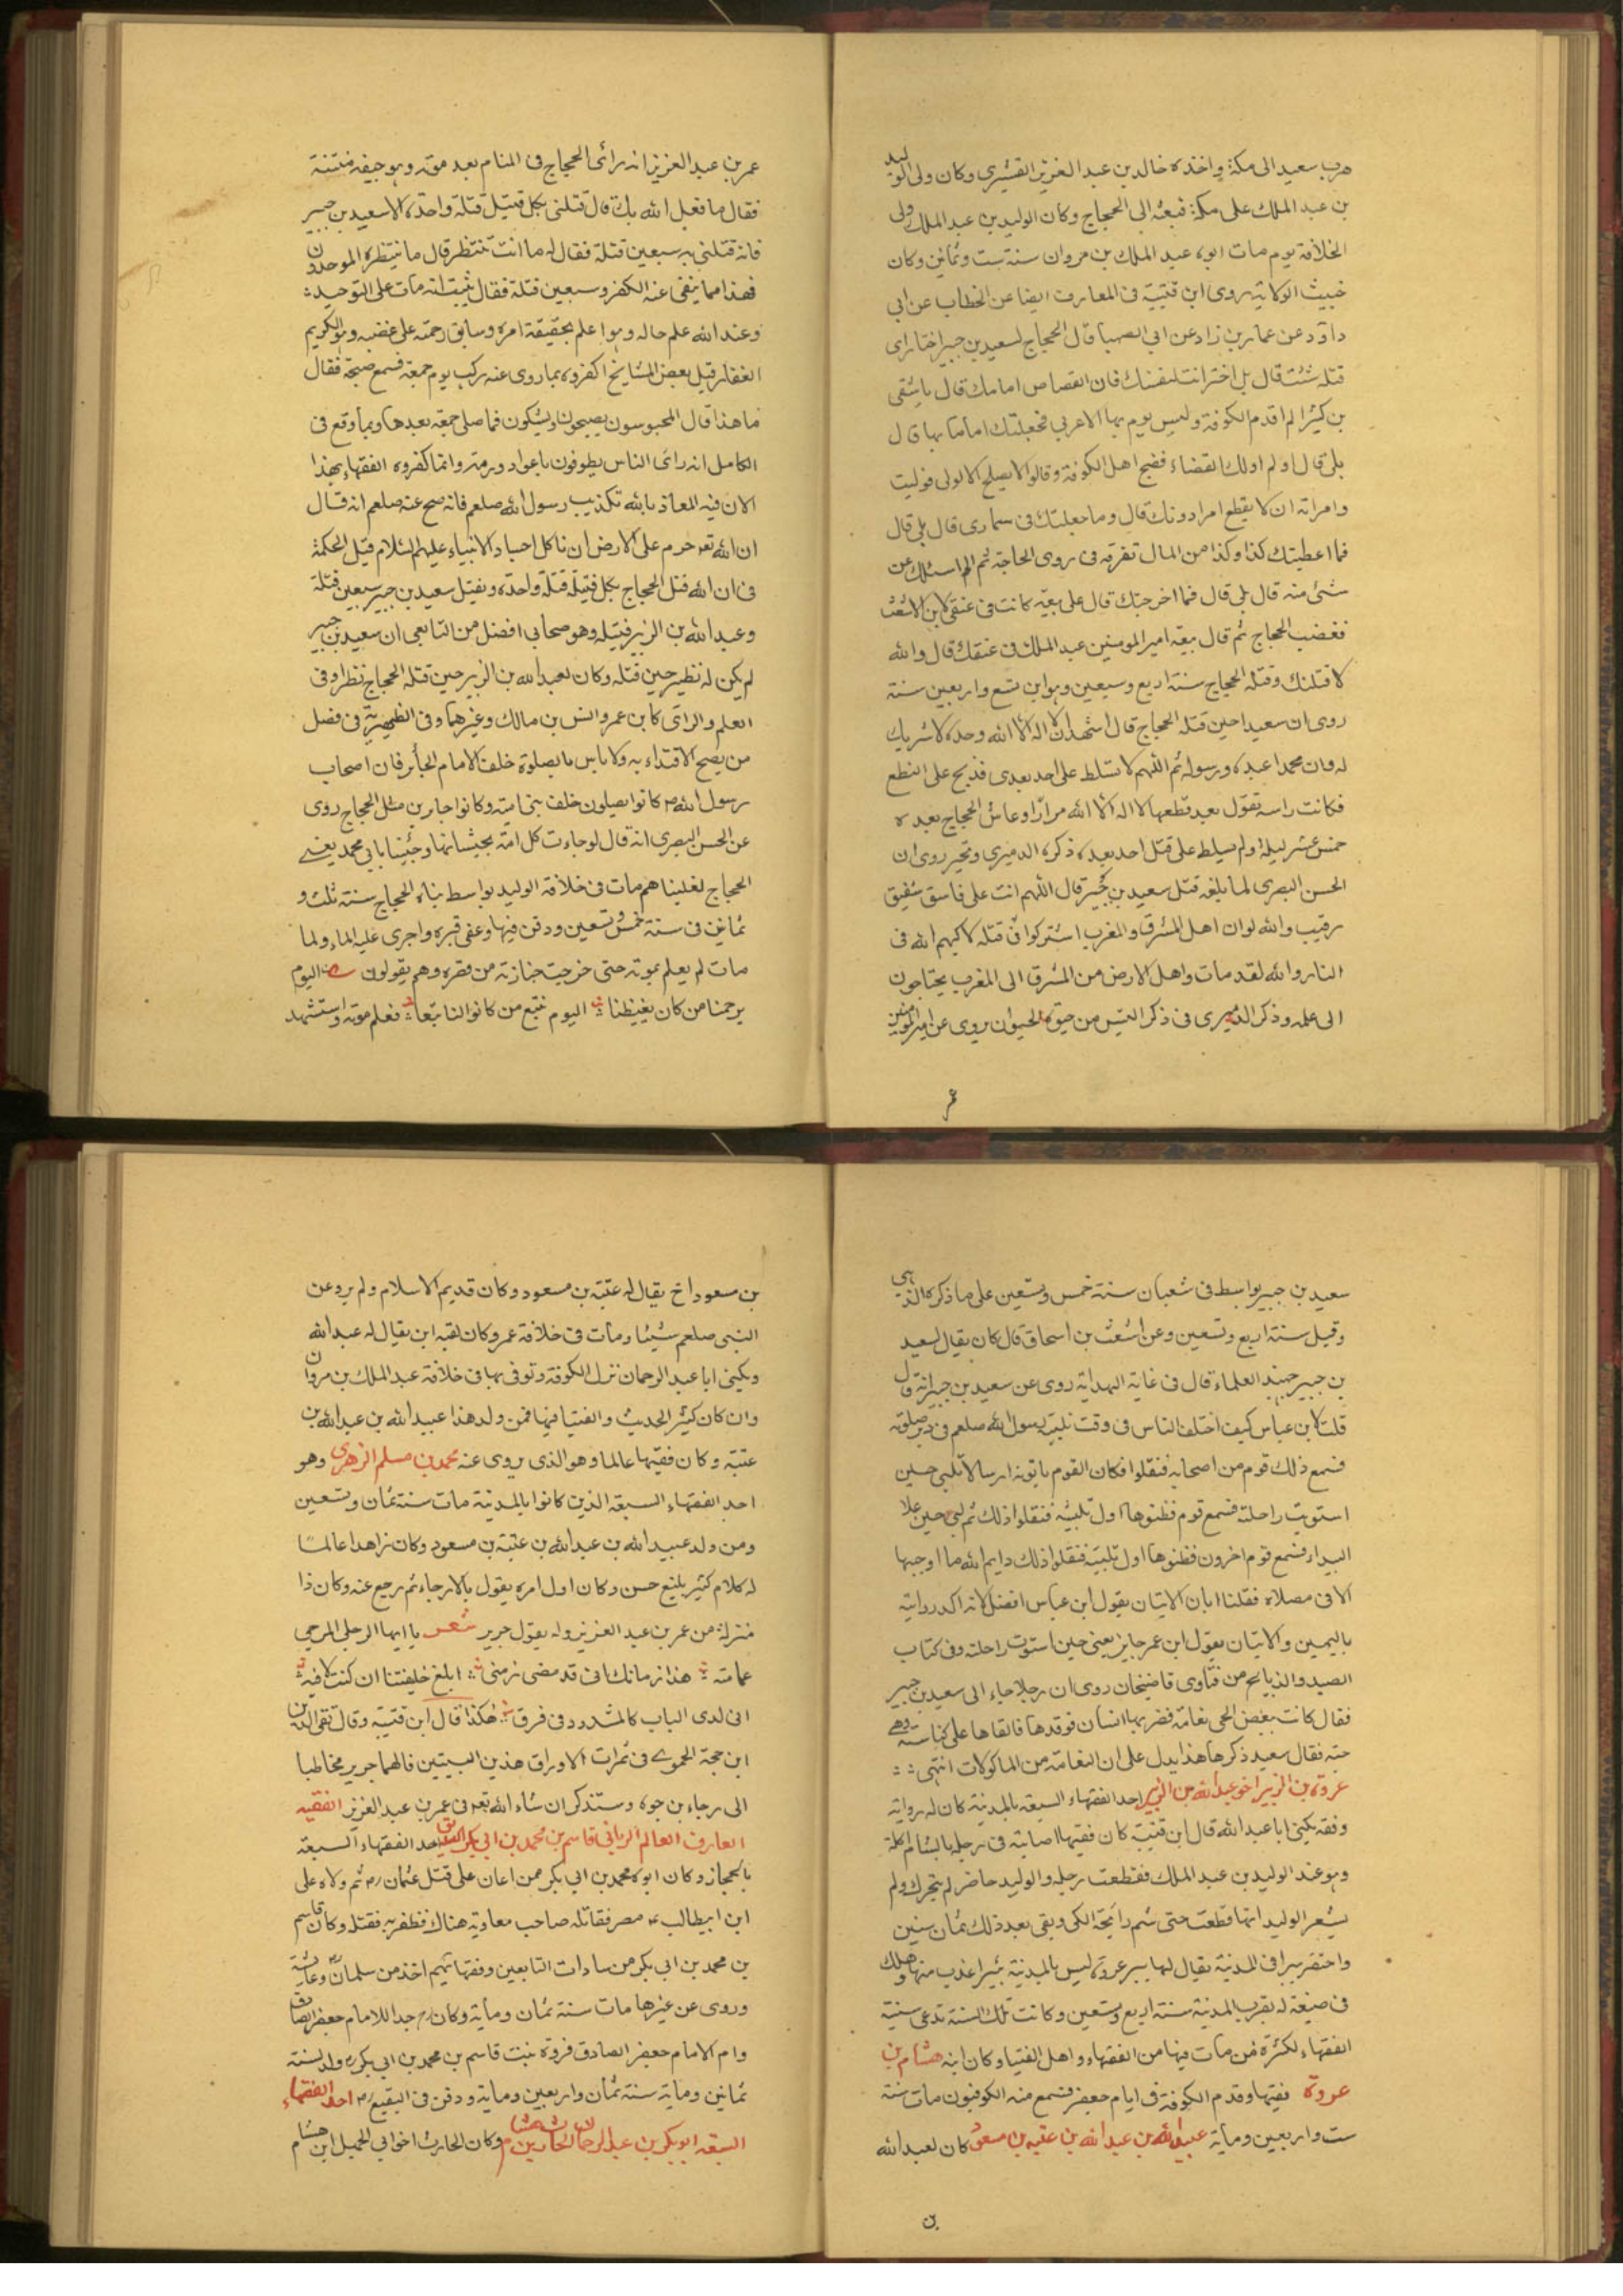 هرب سعيد الى مكة واخذه خالد بن عبد العزيز القشيرى وكان ولى الوليد
بن عبد الملك على مكة فبعثه الى الحجاج وكان الوليد بن عبد الملك ولى
الخلافة يوم مات ابوه عبد الملك بن مروان سنة ست وثمانين وكان
خبيث الولاية روى ابن قتيبة فى المعارف ايضا عن الخطاب عن ابى
داود عن عمار بن زاد عن ابى الصهبا قال الحجاج لسعيد بن جبير اختار اى
قتلة شئت قال بل اختر انت لنفسك فان القصاص امامك قال يا شقى
بن كثير الم اقدم الكوفة وليس يوم بها الا عربى فجعلتك اماما بها قال
بلى قال اولم اولك القضاء فضج اهل الكوفة وقالوا لا يصلح الا لولى فوليت
وامراته ان لا يقطع امرا دونك قال وما جعلتك فى سمارى قال بلى قال
فما اعطيتك كذا وكذا من المال تفرقه فى ذوى الحاجة ثم لم اسئلك عن
شئ منه قال بلى قال فما اخرجك قال على بيعة كانت فى عنقى لابن الاشعث
فغضب الحجاج ثم قال بيعة امير المومنين عبد الملك فى عنقك قال والله
لاقتلنك وقتله الحجاج سنة اربع وسبعين وهو ابن تسع واربعين سنة
روى ان سعيدا حين قتله الحجاج قال اشهد ان لا اله الا الله وحده لا شريك
له وان محمدا عبده ورسوله ثم اللهم لا تسلط على احد بعدى فذبح على النطع
فكانت راسه تقول بعد قطعها لا اله الا الله مرارا وعاش الحجاج بعده
خمس عشر ليلة ولم يسلط على قتل احد بعده ذكره الدميرى وتحير روى ان
الحسن البصرى لما بلغه قتل سعيد بن جبير قال اللهم انت على فاسق ثقيف
رقيب والله لو ان اهل المشرق والمغرب اشتركوا فى قتله لاكبهم الله فى
النار والله لقد مات واهل الارض من المشرق الى المغرب يحتاجون
الى علمه وذكر الدميرى فى ذكر التيس من حيوة الحيوان يروى عن امير المومنين
عمر
عمر بن عبد العزيز انه رائ الحجاج فى المنام بعد موته وهو جيفة منتنة
فقال ما فعل الله بك قال قتلنى بكل قتيل قتلة واحدة الا سعيد بن جبير
فانه قتلنى به سبعين قتلة فقال له ما انت تنتظر قال ما ينتظره الموحدون
فهذا مما ينفى عنه الكفر وسبعين قتلة فقال يثبت انه مات على التوحيد
وعند الله علم حاله وهو اعلم بحقيقة امره وسابق رحمته على غضبه وهو الكريم
الغفار قيل بعض المشايخ اكفروه بما روى عنه ركب يوم جمعة فسمع ضجة فقال
ما هذا قال المحبوسون يصيحون ويشكون فما صلى جمعة بعدها وبما وقع فى
الكامل انه رائ الناس يطوفون باعواد ورمة وانما كفروه الفقهاء بهذا
لان فيه المعاذ بالله تكذيب رسول الله صلعم فانه صح عنه صلعم انه قال
ان الله تعه حرم على الارض ان تاكل اجساد الانبياء عليهم السلام قيل الحكمة
فى ان الله قتل الحجاج بكل قتيلة قتلة واحدة وبقتل سعيد بن جبير سبعين قتلة
وعبد الله بن الزبير قتيله وهو صحابى افضل من التابعى ان سعيد بن جبير
لم يكن له نظير حين قتله وكان لعبد الله بن الزبير حين قتله الحجاج نظراء فى
العلم والرائ كابن عمر وانس بن مالك وغيرهما وفى الظهيرية فى فصل
من يصح الاقتداء به ولا باس بالصلوة خلف الامام الجائر فان اصحاب
رسول الله م كانوا يصلون خلف بنى امية وكانوا جابرين مثل الحجاج روى
عن الحسن البصرى انه قال لو جاءت كل امة بخبيثاتها وجئنا بابى محمد يعنى
الحجاج لغلبناهم مات فى خلافة الوليد بواسط بناء الحجاج سنة ثلث و
ثمانين فى سنة خمس وتسعين ودفن فيها وعفى قبره واجرى عليه الماء ولما
مات لم يعلم بموته حتى خرجت جنازته من قصره وهم يقولون اليوم
يرحمنا من كان يغيظنا اليوم نتبع من كانوا لنا تبعا فعلم موته واستشهد
سعيد بن جبير بواسط فى شعبان سنة خمس وتسعين على ما ذكره الذهبى
وقيل سنة اربع وتسعين وعن اشعث بن اسحاق قال كان يقال لسعيد
بن جبير جهبذ العلماء قال فى غاية الهداية روى عن سعيد بن جبير انه قال
قلت لابن عباس كيف اختلف الناس فى وقت تلبية رسول الله صلعم فى دبر صلوته
فسمع ذلك قوم من اصحابه فنقلوا فكان القوم ياتونه ارسالا تلبى حين
استوت راحلته فسمع قوم فظنوها اول تلبية فنقلوا ذلك ثم لبى حين علا
البيداء فسمع قوم اخرون فظنوها اول تلبية فنقلوا ذلك وايم الله ما اوجبها
الا فى مصلاه فقلنا ابان الاتيان بقول ابن عباس افضل لانه اكد روايته
باليمين والاتيان بقول ابن عمر جايز يعنى حين استوت راحلته وفى كتاب
الصيد والذبايح من فتاوى قاضيخان روى ان رجلا جاء الى سعيد بن جبير
فقال كانت ببعض الحى نعامة فضربها انسان فوقذها فالقاها على كناسة وهى
حية فقال سعيد ذكوها هذا يدل على ان النعامة من الماكولات انتهى
عروة بن الزبير اخو عبد الله بن الزبير احد الفقهاء السبعة بالمدينة كان له رواية
وفقه يكنى ابا عبد الله قال ابن قتيبة كان فقيها اصابته فى رجله بالشام اكلة
وهو عند الوليد بن عبد الملك فقطعت رجله والوليد حاضر لم يتحرك ولم
يشعر الوليد انها قطعت حتى شم رائحة الكى وبقى بعد ذلك ثمان سنين
واحتفر بيرا فى المدينة يقال لها بير عروة ليس بالمدينة بئيرا عذب منها وهلك
فى ضيعة له بقرب المدينة سنة اربع وتسعين وكانت تلك السنة تدعى سنة
الفقهاء لكثرة من مات فيها من الفقهاء واهل الفتيا وكان ابنه هشام بن
عروة فقيها وقدم الكوفة فى ايام جعفر فسمع منه الكوفيون مات سنة
ست واربعين ومأية عبيد الله بن عبد الله بن عتبه بن مسعود كان لعبد الله
بن
بن مسعود اخ يقال له عتبة بن مسعود وكان قديم الاسلام ولم يرو عن
النبى صلعم شيئا ومات فى خلافة عمر وكان لعتبه ابن يقال له عبد الله
ويكنى ابا عبد الرحمان نزل الكوفة وتوفى بها فى خلافة عبد الملك بن مروان
وان كان كثير الحديث والفتيا فيها فمن ولد هذا عبيد الله بن عبد الله بن
عتبة وكان فقيها عالما وهو الذى يروى عنه محمد بن مسلم الزهرى وهو
احد الفقهاء السبعة الذين كانوا بالمدينة مات سنة ثمان وتسعين
ومن ولد عبيد الله بن عبد الله بن عتبة بن مسعود وكان زاهدا عالما
له كلام كثير بليغ حسن وكان اول امره يقول بالارجاء ثم رجع عنه وكان ذا
منزلة من عمر بن عبد العزيز وله يقول جرير شعر يا ايها الرجل المرخى
عمامته هذا زمانك انى قد مضى زمنى ابلغ خليفتنا ان كنت لاقيه
انى لدى الباب كالمشدود فى قرن هكذا قال ابن قتيبة وقال تقى الدين
ابن حجة الحموى فى ثمرات الاوراق هذين البيتين قالهما جرير مخاطبا
الى رجاء بن حيوة وستذكر ان شاء الله تعه فى عمر بن عبد العزيز الفقيه
العارف العالم الربانى قاسم بن محمد بن ابى بكر الصديق احد الفقهاء السبعة
بالحجاز وكان ابوه محمد بن ابى بكر ممن اعان على قتل عثمان رم ثم ولاه على
ابن ابيطالب مصر فقاتله صاحب معاوية هناك فظفر به فقتله وكان قاسم
بن محمد بن ابى بكر من سادات التابعين وفقهائهم اخذ من سلمان وعائشة
وروى عن غيرها مات سنة ثمان ومأية وكان جدا للامام جعفر الصادق
وام الامام جعفر الصادق فروة بنت قاسم بن محمد بن ابى بكر ولد لسنة
ثمانين ومأية سنة ثمان واربعين ومأية ودفن فى البقيع احد الفقهاء
السبعة ابو بكر بن عبد الرحمان الحارث بن هشام وكان الحارث اخو ابى الجهل ابن هشام